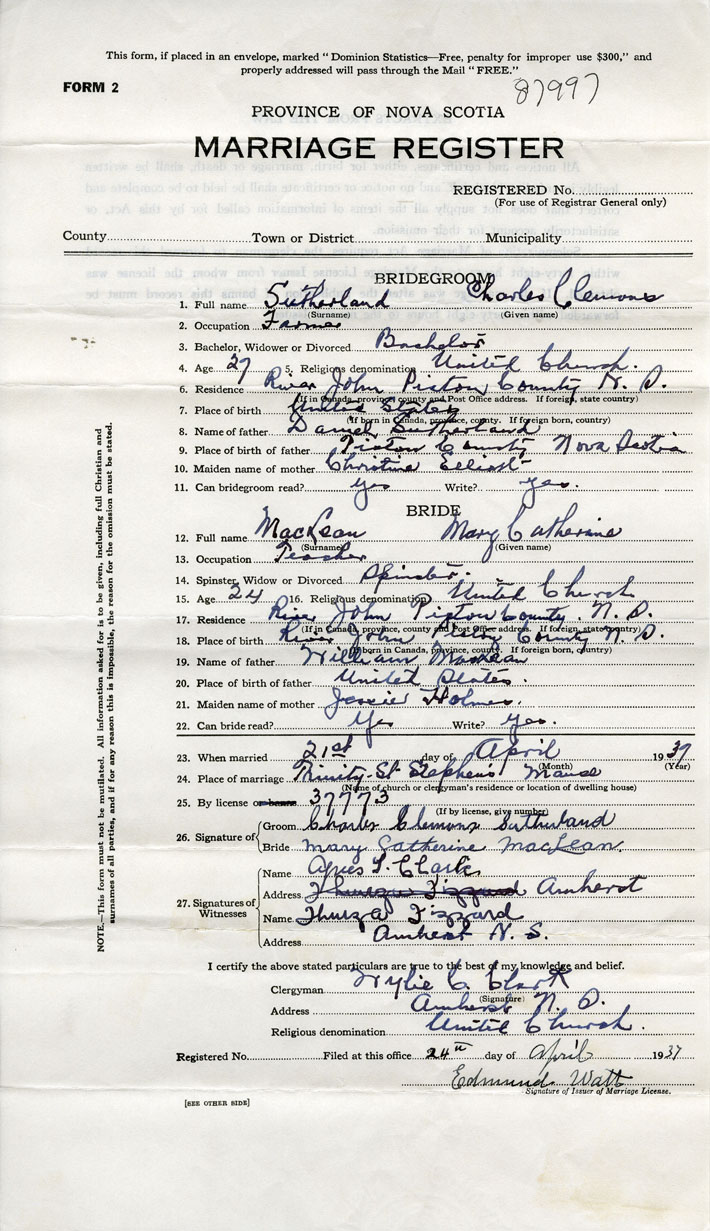 This form, if placed in an envelope, marked "Dominion Statistics—Free, penalty for improper use $300," and
properly addressed will pass through the Mail "FREE."
FORM 2
87997
PROVINCE OF NOVA SCOTIA
MARRIAGE REGISTER
REGISTERED No.
(For use of Registrar General only)
County Town or District Municipality
BRIDEGROOM
1. Full name Sutherland Charles Clemons
(Surname) (Given name)
2. Occupation Farmer
3. Bachelor, Widower or Divorced Bachelor
4. Age 27 5. Religious denomination United Church.
6. Residence River John Pictou County N. S.
(If in Canada, province, county and Post Office address. If foreign, state country)
7. Place of birth United States
(If born in Canada, province, county. If foreign born, country)
8. Name of father Daniel Sutherland
9. Place of birth of father Pictou County Nova Scotia
10. Maiden name of mother Christine Elliott
11. Can bridegroom read? yes Write? yes.
BRIDE
12. Full name MacLean Mary Catherine
(Surname) (Given name)
13. Occupation Teacher
14. Spinster, Widow or Divorced Spinster.
15. Age 24 16. Religious denomination United Church
17. Residence River John Pictou County. N. S.
(If in Canada, province, county and Post Office address. If foreign, state country)
18. Place of birth River John Pictou County N. S.
(If born in Canada, province, county. If foreign born, country)
19. Name of father William MacLean
20. Place of birth of father United States.
21. Maiden name of mother Jessie Holmes.
22. Can bride read? Yes Write? yes.
23. When married 21st day of April 1937
(Month) (Year)
24. Place of marriage Trinity-St Stephens' Manse
(Name of church or clergyman's residence or location of dwelling house)
25. By license or banns 37773
(If by license, give number)
26. Signature of Groom Charles Clemons Sutherland
Bride Mary Catherine MacLean.
27. Signatures of Witnesses
Name Agnes L. Clark
Address Thurza Fizzard Amherst
Name Thurza Fizzard
Address Amherst N. S.
I certify the above stated particulars are true to the best of my knowledge and belief.
Clergyman Wylie C. Clark
(Signature)
Address Amherst N. S.
Religious denomination United Church.
Registered No. Filed at this office 24th day of April 1937
Edmund Watt
Signature of Issuer of Marriage License.
[SEE OTHER SIDE]
NOTE.—This form must not be mutilated. All information asked for is to be given, including full Christian and
surnames of all parties, and if for any reason this is impossible, the reason for the omission must be stated.